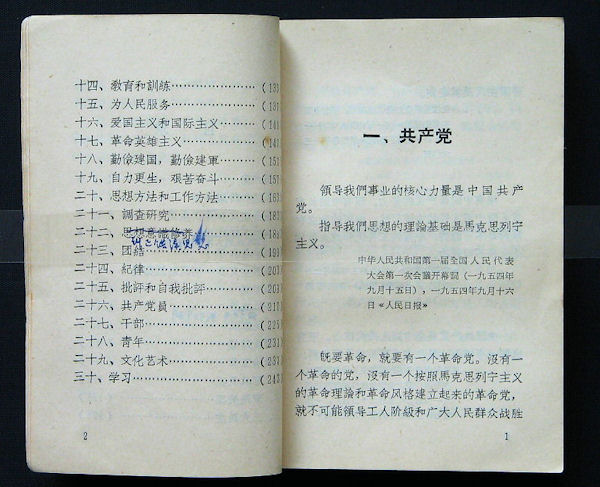 十四、教育和訓練
十五、为人民服务
十六、爱国主义和国际主义
十七、革命英雄主义
十八、勤儉建国，勤儉建軍
十九、自力更生，艰苦奋斗
二十、思想方法和工作方法
二十一、調查研究
二十二、思想意識修养
二十三、团結
二十四、紀律
二十五、批評和自我批評
二十六、共产党員
二十七、干部
二十八、青年
二十九、文化艺术
三十、学习
2
一、共产党
領导我們事业的核心力量是中国共产
党。
指导我們思想的理論基础是馬克思列宁
主义。
中华人民共和国第一届全国人民代表
大会第一次会議开幕詞（一九五四年
九月十五日），一九五四年九月十六
日《人民日报》
既要革命，就要有一个革命党。沒有一
个革命的党，沒有一个按照馬克思列宁主义
的革命理論和革命风格建立起来的革命党，
就不可能領导工人阶級和广大人民群众战胜
1